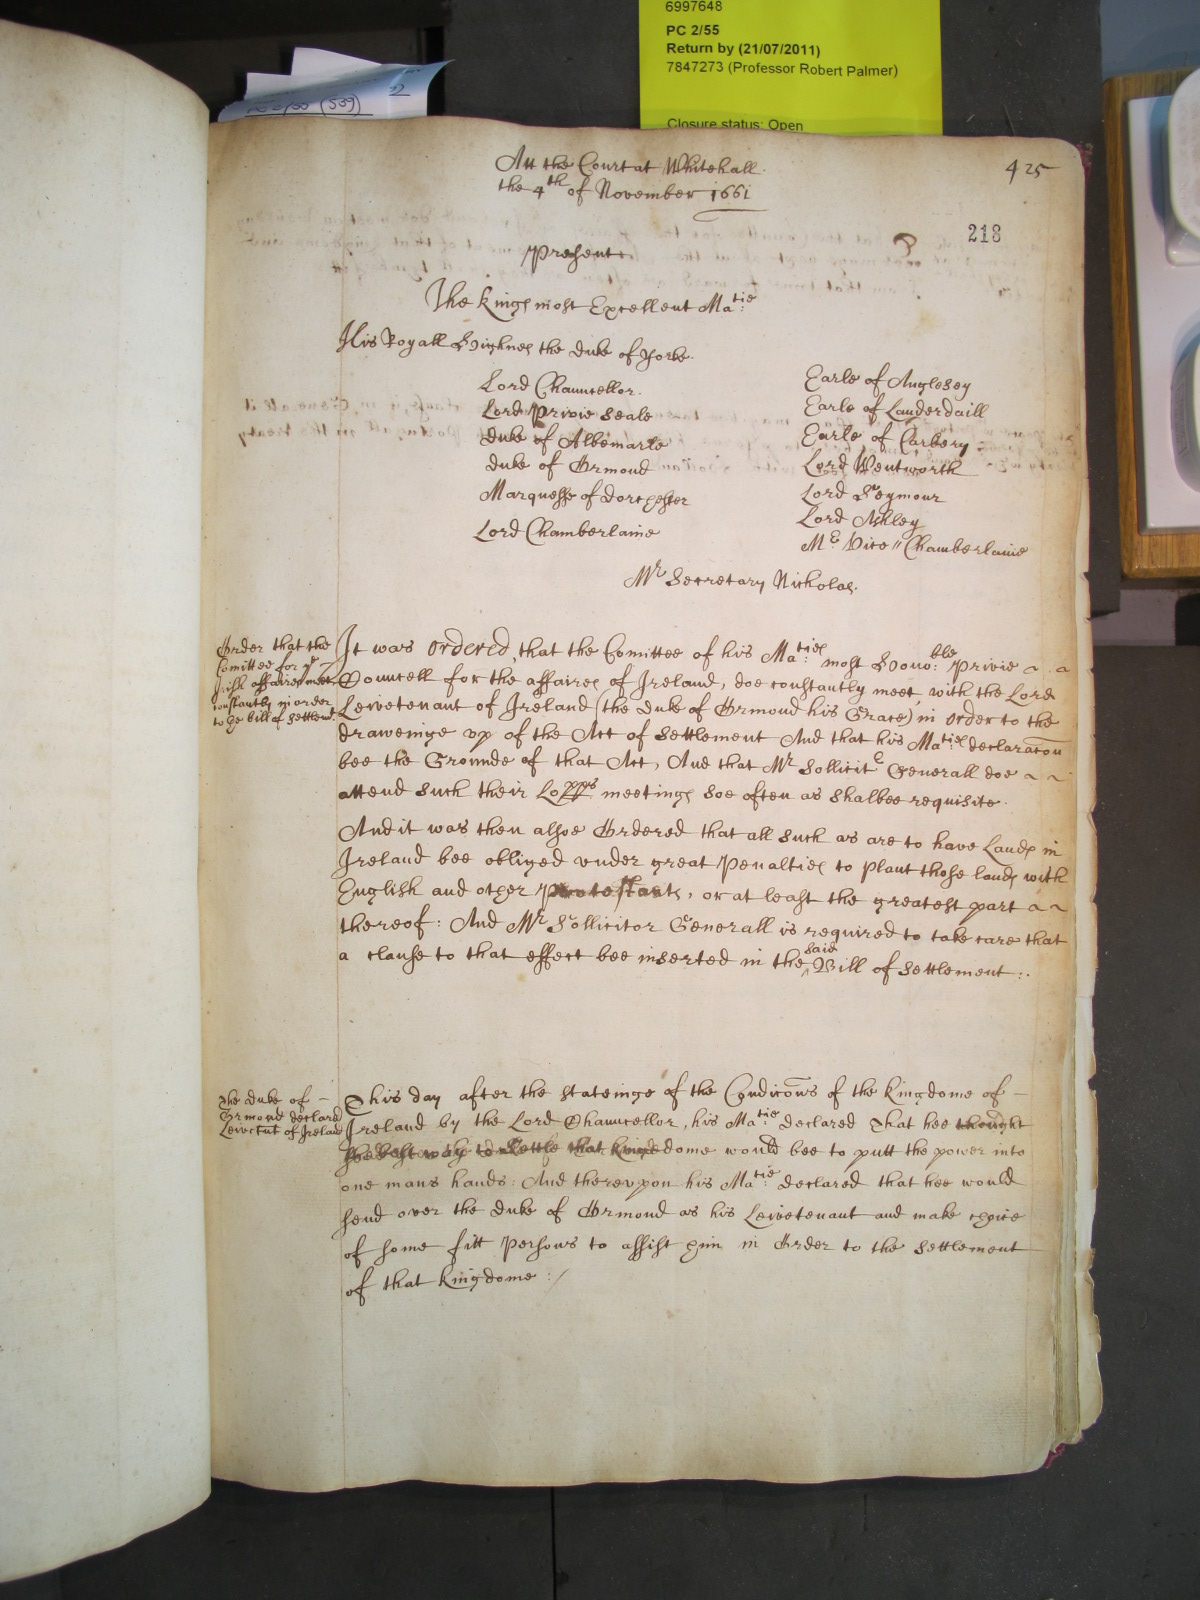 6997648
PC 2/55
Return by (21/07/2011)
7847273 (Professor Robert Palmer)
Closure status: Open
(539)
Att the Court at Whitehall
the 4th of November 1661
425
218
Present
The Kings most Excellent Matie
His Royall Highnes the Duke of Yorke
Lord Chauncellor.
Lord Privie Seale
Duke of Albemarle
Duke of Ormond
Marquesse of Dorchester
Lord Chamberlaine
Earle of Anglesey
Earle of Lauderdaill
Earle of Carbery
Lord Wentworth
Lord Seymour
Lord Ashley
Mr Vice Chamberlaine
Mr Secretary Nicholas.
Order that the
Comittee for ye
Irish affaires meet
constantly in order
to ye bill of Settlemt.
It was Ordered, that the Comittee of his Maties most Honoble Privie
Councell for the affaires of Ireland, doe constantly meet, with the Lord
Leivetenant of Ireland (the Duke of Ormond his Grace) in Order to the
draweinge up of the Act of Settlement And that his Maties declaracon
bee the Grounde of that Act, And that Mr Sollicitr Generall doe
attend such their Lopps meetings soe often as shalbee requisite.
And it was then alsoe Ordered that all such as are to have Lands in
Ireland bee obliged under great Penalties to Plant those lands with
English and other Protestants, or at least the greatest part
thereof: And Mr Sollicitor Generall is required to take care that
a clause to that effect bee inserted in the said Bill of Settlement:.
The Duke of
Ormond declared
Leivetnt of Ireland
This day after the stateinge of the Condicons of the Kingdome of
Ireland by the Lord Chauncellor, his Matie declared That hee thought
the best way to Settle that Kingdome would bee to putt the power into
one mans hands: And thereupon his Matie declared that hee would
send over the Duke of Ormond as his Leivetenant and make choice
of some fitt Persons to assist him in Order to the Settlement
of that Kingdome :/